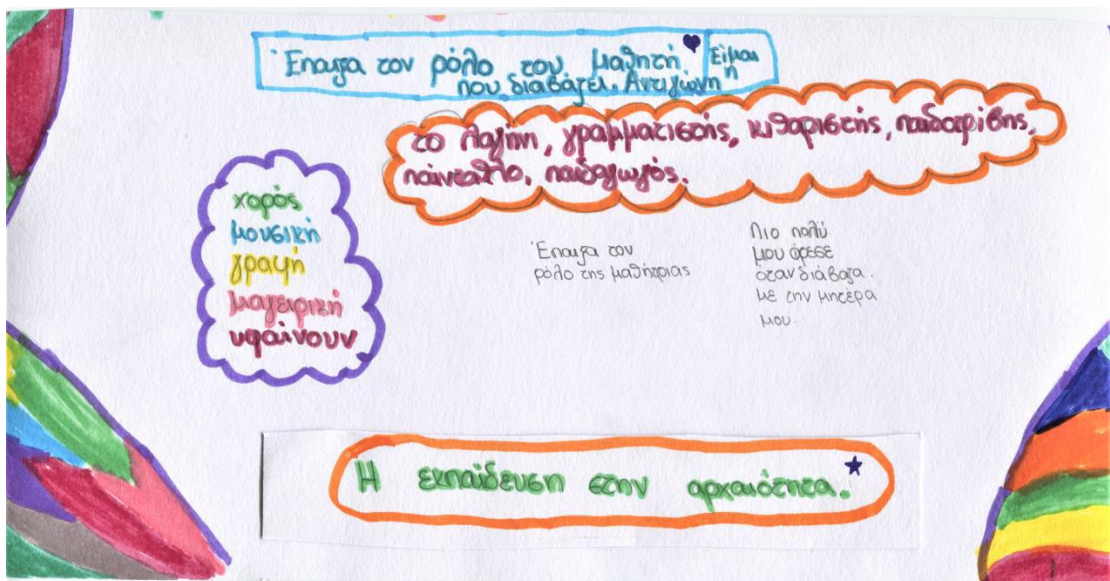 Έπαιξα τον ρόλο του μαθητή
που διαβάζει. Αντιγώνη
Είμαι
η
το λαγήνι, γραμματιστής, κιθαριστής, παιδοτρίβης,
πένταθλο, παιδαγωγός.
χορός
μουσική
γραφή
μαγειρική
υφαίνουν
Έπαιξα τον
ρόλο της μαθήτριας
Πιο πολύ
μου άρεσε
όταν διάβαζα.
με την μητέρα
μου.
Η εκπαίδευση στην αρχαιότητα.